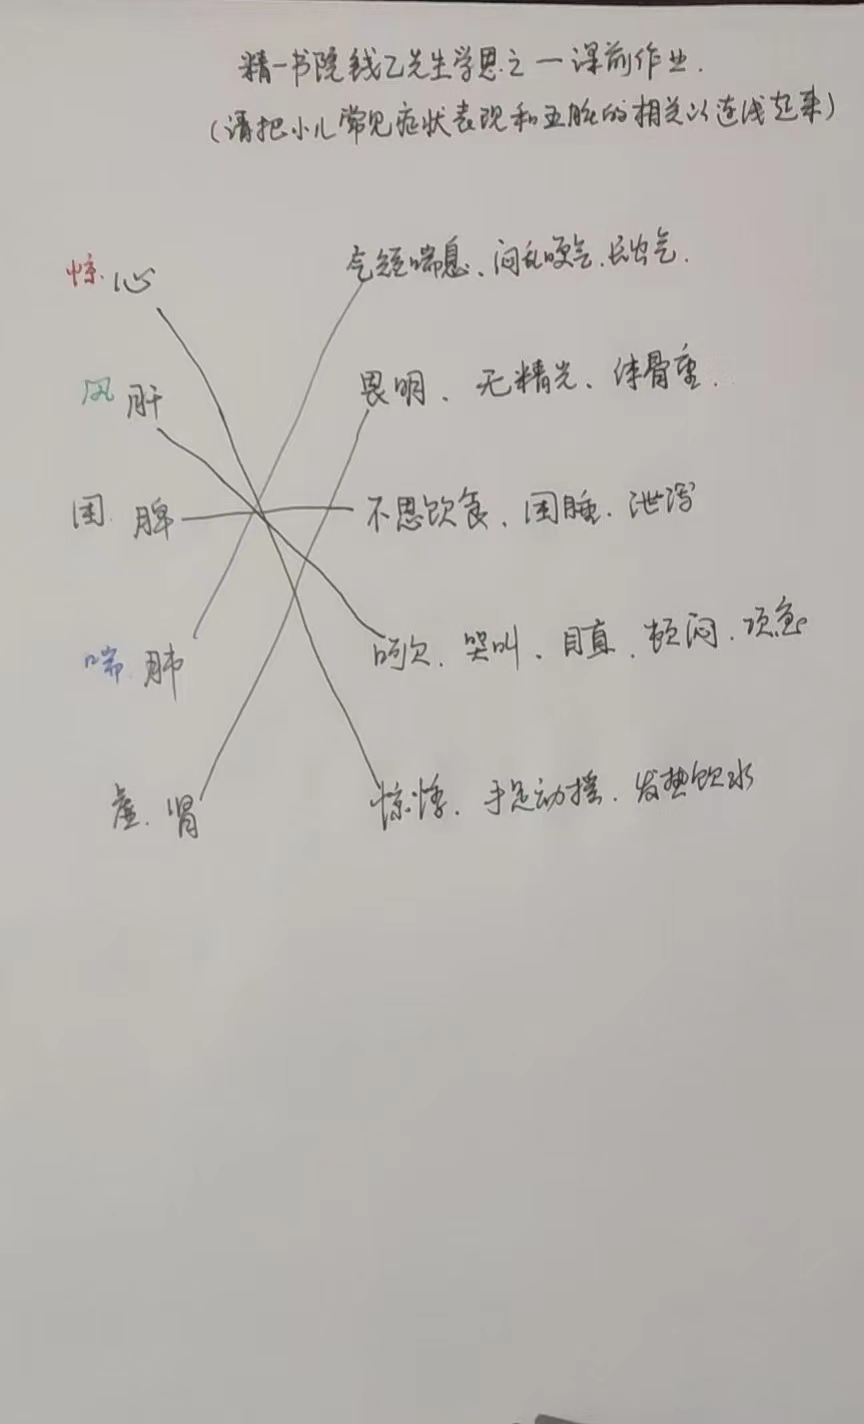 精一书院钱乙先生学思之一课前作业.
(请把小儿常见症状表现和五脏的相关以连线起来)
惊.心 气短喘息、闷乱哽气.长出气.
风 肝 畏明、无精光、体骨重.
困.脾 不思饮食、困睡.泄泻
喘.肺 呵欠.哭叫、目直.顿闷.项急
虚.肾 惊悸.手足动摇.发热饮水